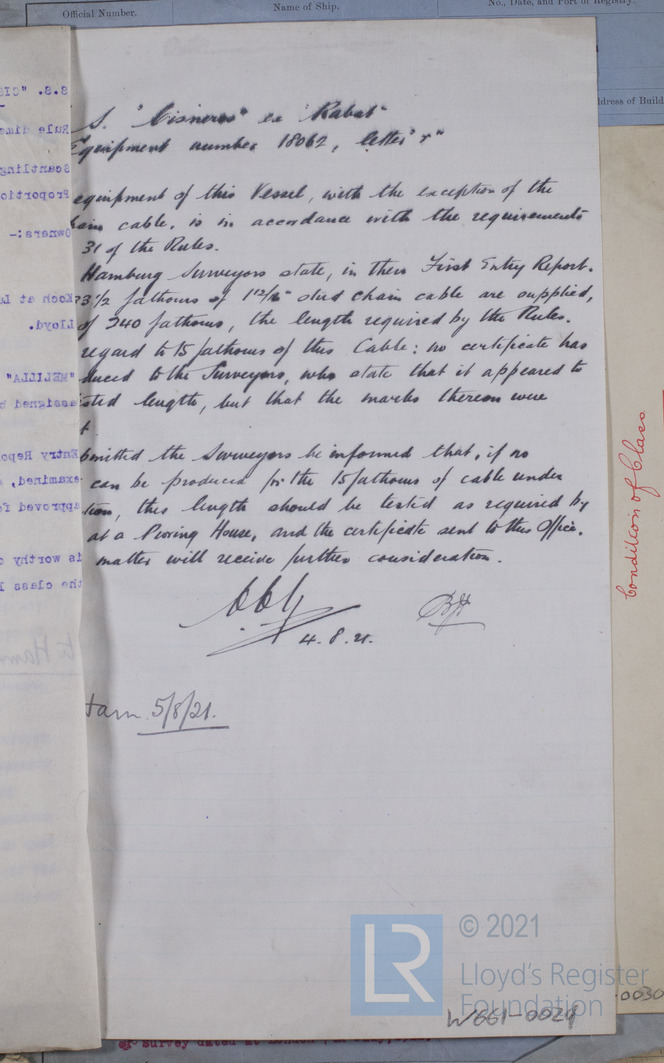 Official Number.
Name of Ship.
No., Date, and Port of Registry.
dress of Build
S. "Cisneros" ex "Rabat"
Equipment number 18062, letter "r"
equipment of this Vessel, with the exception of the
hain cable, is in accordance with the requirements
31 of the Rules.
Hamburg Surveyors state, in their First Entry Report.
3 1/2 fathoms of 1 15/16" stud chain cable are supplied,
of 240 fathoms, the length required by the Rules.
regard to 15 fathoms of this Cable: no certificate has
duced to the Surveyors, who state that it appeared to
sted length, but that the marks thereon were
t
bmitted the Surveyors be informed that, if no
can be produced for the 15 fathoms of cable under
tion, this length should be tested as required by
at a Proving House, and the certificate sent to this Office,
matter will receive further consideration.
4.8.21.
Ham 5/8/21.
Condition of Class
S.S. "CIS
Rule dime
Scantling
Proportio
Owners:-
Koch at L
Lloyd.
"MELILLA"
assigned b
Entry Repo
examined,
approved f
is worthy o
the class
to Ham
© 2021
LR
Lloyd's Register
Foundation
W661-0029
0030
survey dated at London